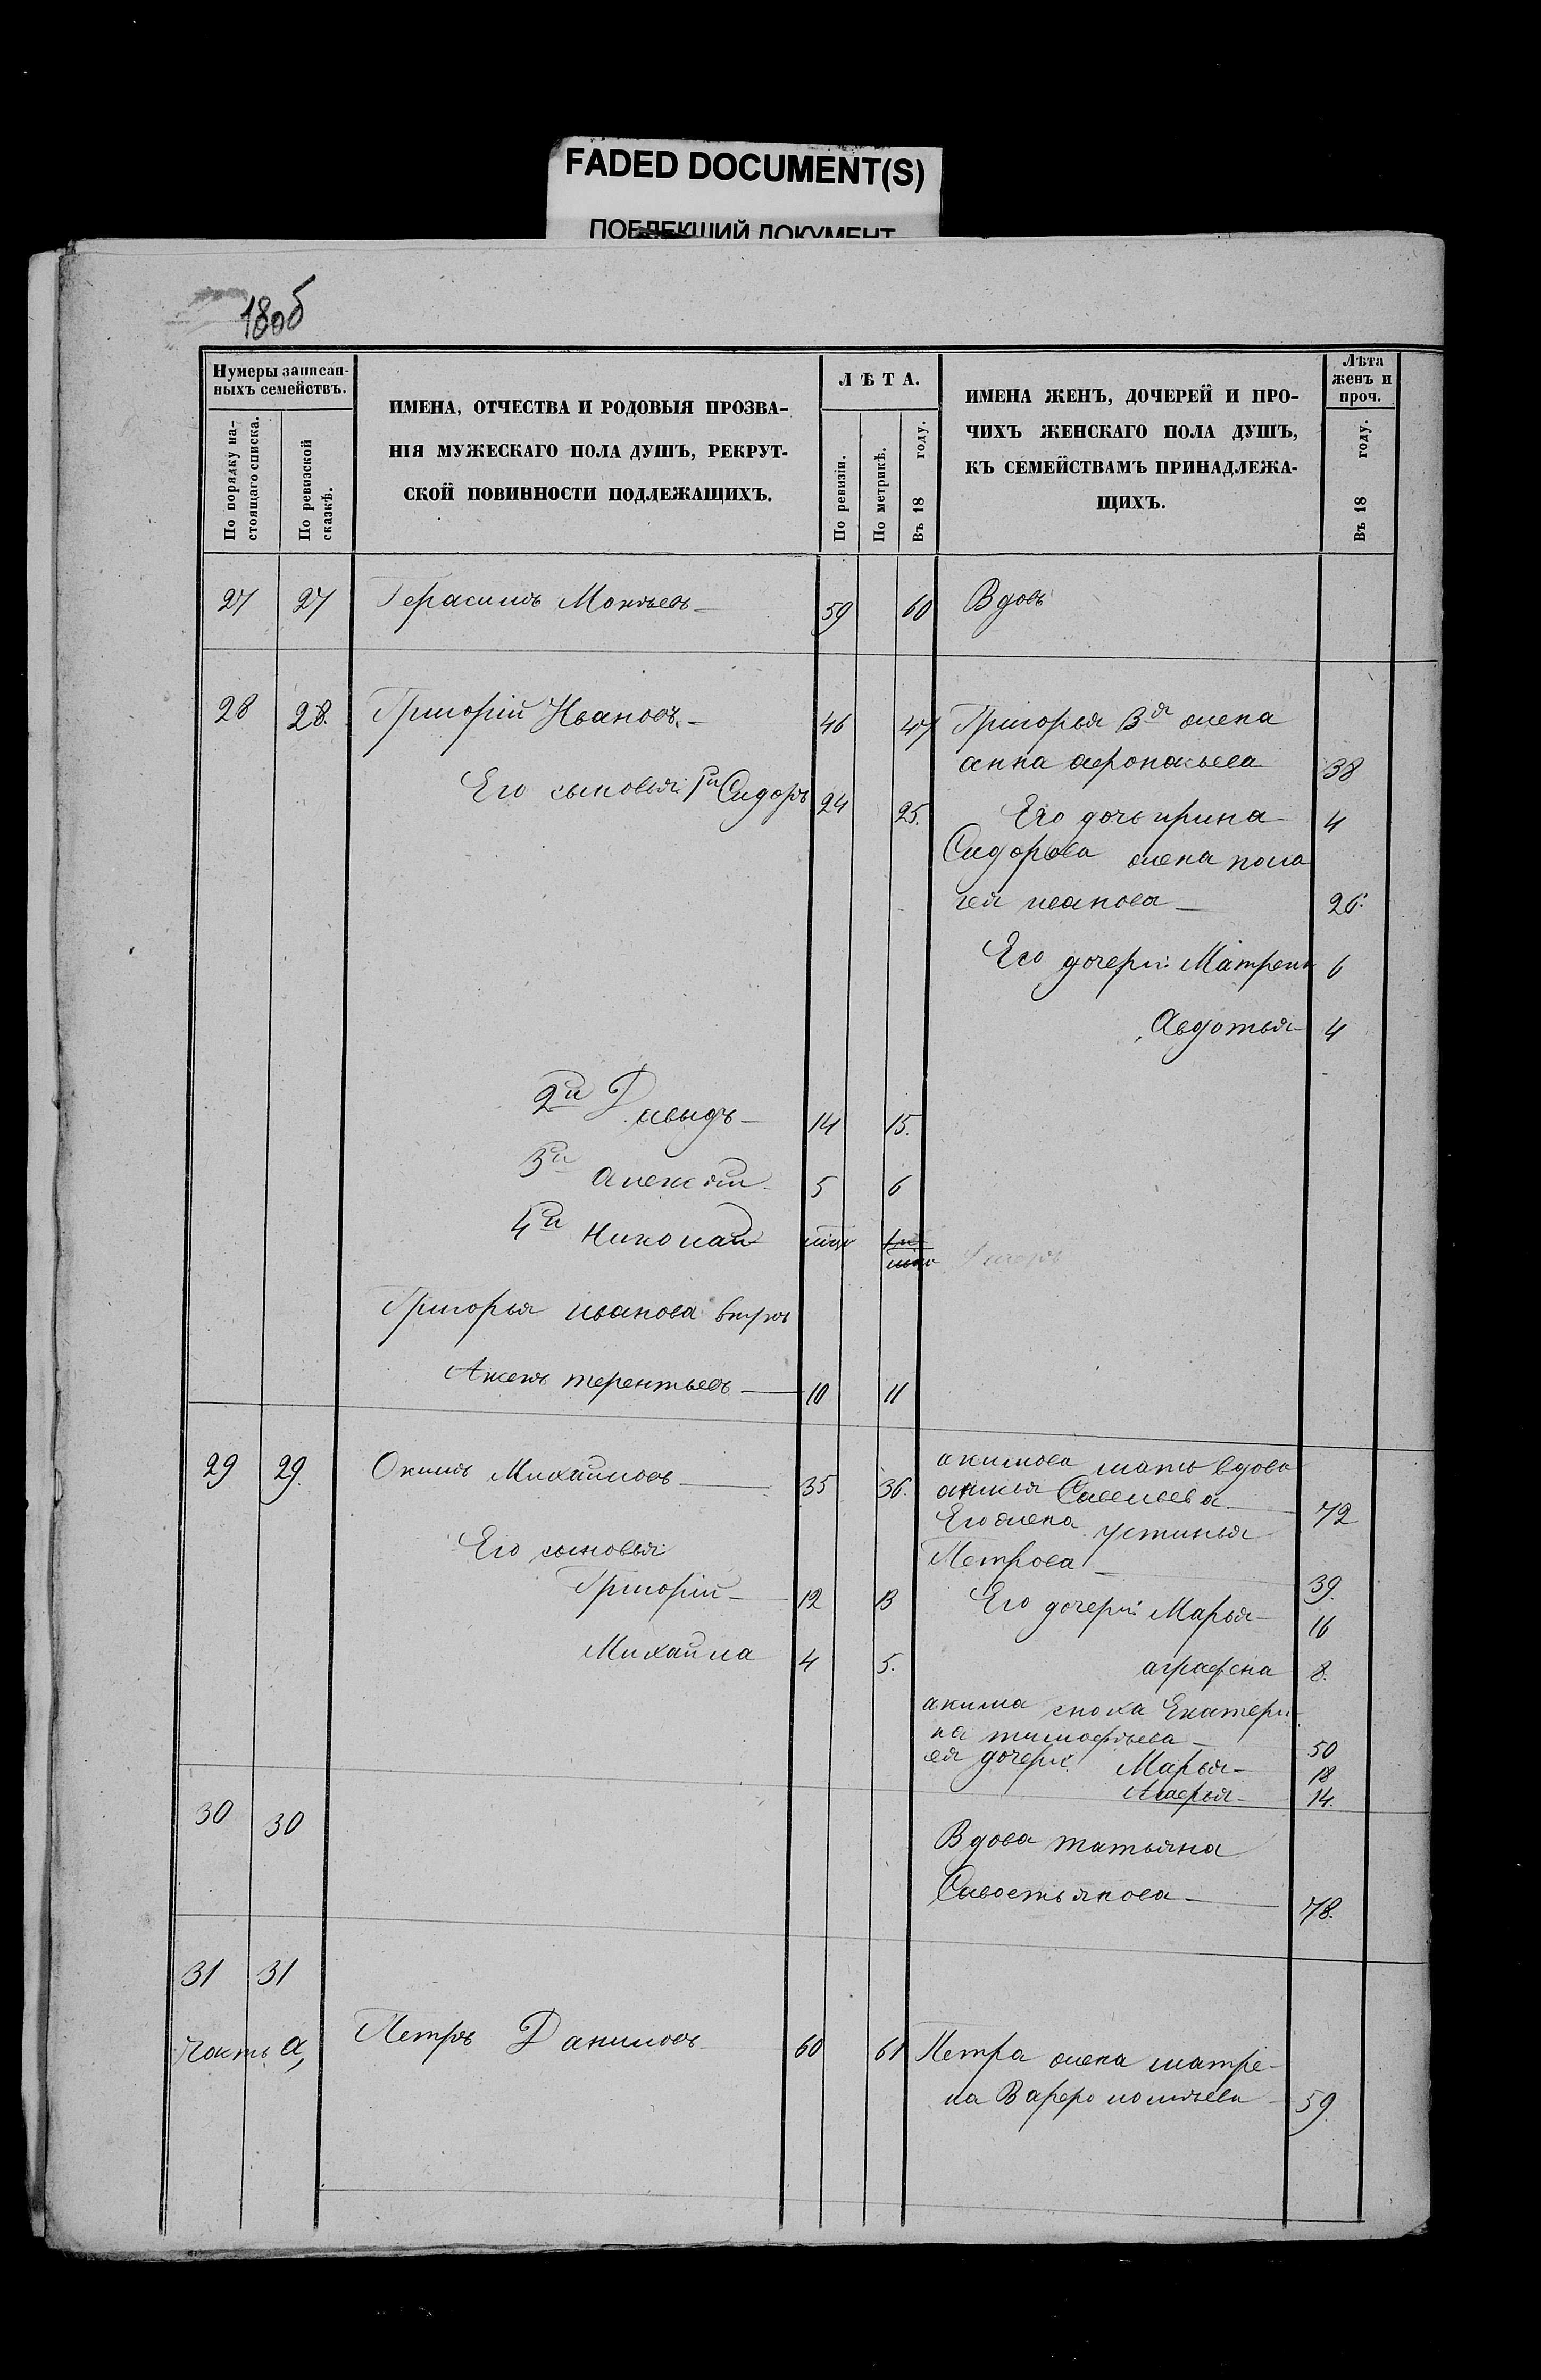 FADED DOCUMENT(S)
180б
Нумеры записан-
ныхъ семействъ.
По порядку на-
стоящаго списка.
По ревизской
сказкѣ.
ИМЕНА, ОТЧЕСТВА И РОДОВЫЯ ПРОЗВА-
НІЯ МУЖЕСКАГО ПОЛА ДУШЪ, РЕКРУТ-
СКОЙ ПОВИННОСТИ ПОДЛЕЖАЩИХЪ.
ЛѢТА.
По ревизіи.
По метрикѣ.
Въ 18 году.
ИМЕНА ЖЕНЪ, ДОЧЕРЕЙ И ПРО-
ЧИХЪ ЖЕНСКАГО ПОЛА ДУШЪ,
КЪ СЕМЕЙСТВАМЪ ПРИНАДЛЕЖА-
ЩИХЪ.
Лѣта
женъ и
проч.
Въ 18 году.
27 27 Герасимъ 59 60 Вдовъ
28 28. Григорій Ивановъ 46 47 Григорья 2я жена
анна афонасьева 38
Его сыновья: 1й Сидоръ 24 25. Его дочь ирина 4
Сидорова жена пела
гея иванова 26.
Его дочери: Матрена 6
Авдотья 4
2й Давыдъ 14 15.
3й алексѣй 5 6
4й Николай
Григорья иванова
терентьевъ 10 11
29 29. Окимъ Михайловъ 35 36. акимова мать вдова
Савельева 72
Его жена устинья
Петрова 39.
Его сыновья
Григорій 12 13 Его дочери: Марья 16
Михайла 4 5. аграфена 8.
акима сноха Екатери
на тимофѣева 50
ея дочери: Марья 18
14.
30 30 Вдова татьяна
Савостьянова 78.
31 31
часть а, Петръ Даниловъ 60 61 Петра жена матре-
на Варфоломѣева 59.